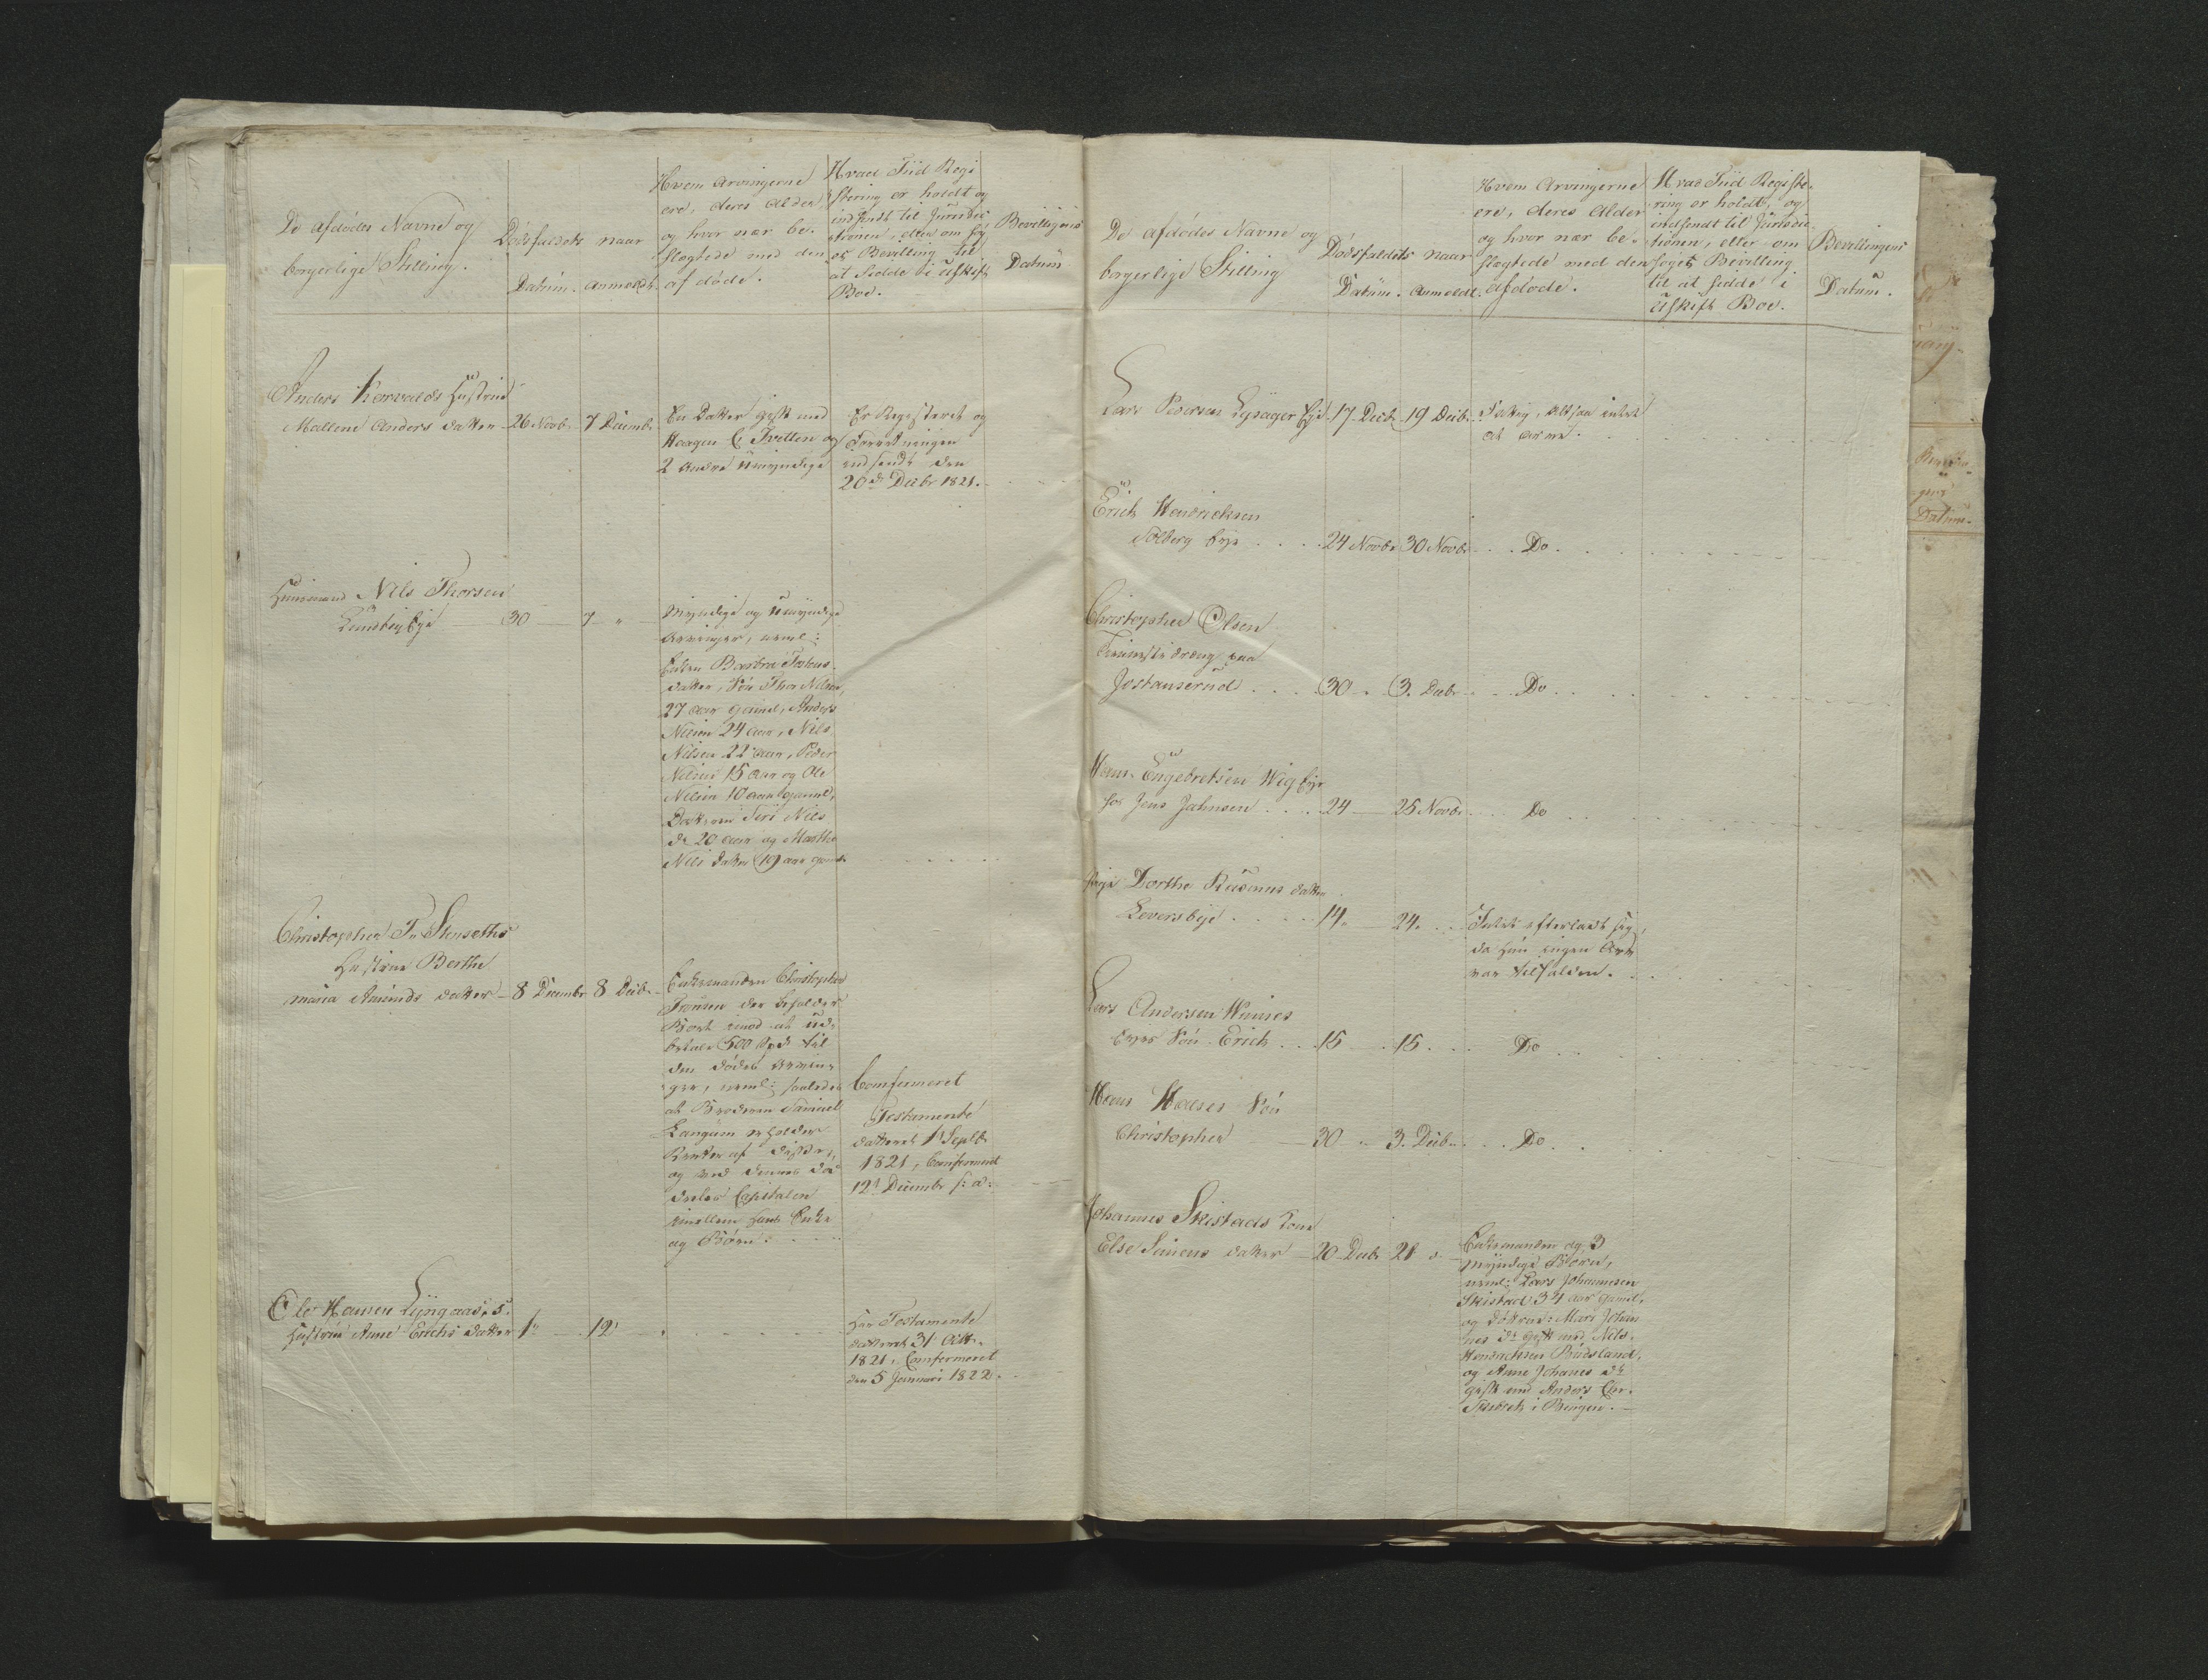 De afdødes Navne og
borgerlige Stilling.
Dødsfaldets
Datum.
naar
Anmeldt.
Hvem Arvingerne
ere, deres Alder
og hvor nær be-
slægtede med den
afdøde.
Hvad Tiid Regi
stering er holdt og
indsendt til Jurisdic
tionen, eller om søg
es Bevilling til
at sidde i uskift
Boe.
Bevillingens
Datum
Anders Korvalds Hustrue
Mallene Anders datter
26 Novb.
7 Decemb.
En Datter gift med
Haagen C. Tvetten og
2 andre Umyndige
Er Registeret og
Forretningen
indsendt den
20de Decbr 1821.
Huusmand Nils Thorsen
Lundbyeje
30
7 "
Myndige og Umyndige
Arvinger, neml:
Enken Barbra
datter, Søn Thor Nilsen,
27 aar gaml, Anders
Nilsen 24 aar, Nils
Nilsen 22 aar, Peder
Nilsen 15 aar og Ole
Nilsen 10 aar gaml,
Døttrene Siri Nils
dr 20 aar og Marthe
Nils datter 19 aar gaml
Christopher Fr. Stenseths
Hustrue Berthe
maria Amunds datter
8 Decembr
8 Decbr
Enkemanden Christopher
Frantzen der beholder
Boet imod at ud-
betale 500 Spd til
den dødes Arvin-
ger, neml: saaledes
at Broderen Samuel
Langum erholder
Renten af disse,
og ved dennes Død
deeles Capitalen
imellem hans Enke
og Børn.
Confirmeret
Testamente
datteret 1 Septbr
1821, Confirmeret
12t Decembr s: a:
Ole Hansen Lyngaas's
Hustrue Anne Erichs datter
1"
12
Har Testamente
datteret 31 Octbr
1821, Confirmeret
den 5 Januari 1822.
De afdødes Navne og
borgerlige Stilling
Dødsfaldets
Datum.
naar
Anmeldt.
Hvem Arvingerne
ere, deres Alder
og hvor nær be-
slægtede med den
Afdøde.
Hvad Tiid Registe-
ring er holdt, og
indsendt til Jurisdic
tionen, eller om
søges Bevilling
til at sidde i
Uskift Boe.
Bevillingens
Datum.
Lars Pedersen Lysager Eje
17 Decbr
19 Decbr.
Fattig, altsaa intet
at arve.
Erich Hendrichsen
Solberg Eje
24 Novbr
30 Novbr
Do.
Christopher Olsen
Tienestedreng paa
Jostanserud
30
3. Decbr
Do.
Hans Engebretsen Wig Eje
hos Jens Johnsen
24
25 Novbr
Do
Pige Dorthe Rasmus datter
Leversbyeje
14
24.
Intet efterladt sig,
da hun ingen Arv
var tilfalden.
Lars Andersen
Ejes Søn Erich
15
15
Do
Hans Søn
Christopher
30
3. Decbr
Do
Johannes Skistads Kone
Else Simens datter
20 Decbr
21
Enkemanden og 3
myndige Børn,
neml: Lars Johannesen
Skistad 34 aar gaml,
og døttrene: Mari Johan
nes dr gift med Nils
Hendrichsen
og Anne Johannes dr
gift med Anders Chr.
i Bergen.
Datum.